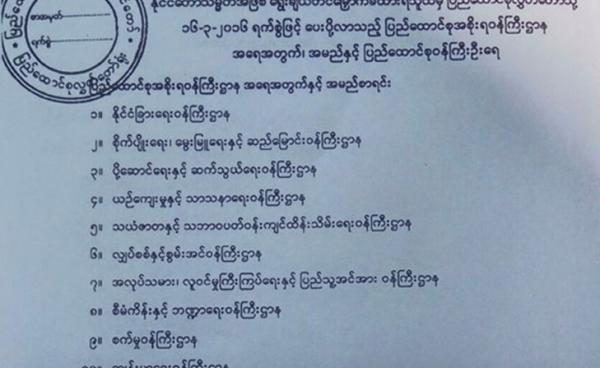 နိုင်ငံတော်သမ္မတအဖြစ် ရွေးချယ်တင်မြှောက်ခံထားရသူထံမှ ပြည်ထောင်စုလွှတ်တော်သို့
၁၆-၃-၂၀၁၆ ရက်စွဲဖြင့် ပေးပို့လာသည့် ပြည်ထောင်စုအစိုးရဝန်ကြီးဌာန
အရေအတွက်၊ အမည်နှင့် ပြည်ထောင်စုဝန်ကြီးဦးရေ
စာအမှတ်
ရက်စွဲ
ပြည်ထောင်စုအစိုးရဝန်ကြီးဌာန အရေအတွက်နှင့် အမည်စာရင်း
၁။ နိုင်ငံခြားရေးဝန်ကြီးဌာန
၂။ စိုက်ပျိုးရေး၊ မွေးမြူရေးနှင့် ဆည်မြောင်းဝန်ကြီးဌာန
၃။ ပို့ဆောင်ရေးနှင့် ဆက်သွယ်ရေးဝန်ကြီးဌာန
၄။ ယဉ်ကျေးမှုနှင့် သာသနာရေးဝန်ကြီးဌာန
၅။ သယံဇာတနှင့် သဘာဝပတ်ဝန်းကျင်ထိန်းသိမ်းရေးဝန်ကြီးဌာန
၆။ လျှပ်စစ်နှင့်စွမ်းအင်ဝန်ကြီးဌာန
၇။ အလုပ်သမား၊ လူဝင်မှုကြီးကြပ်ရေးနှင့် ပြည်သူ့အင်အား ဝန်ကြီးဌာန
၈။ စီမံကိန်းနှင့် ဘဏ္ဍာရေးဝန်ကြီးဌာန
၉။ စက်မှုဝန်ကြီးဌာန